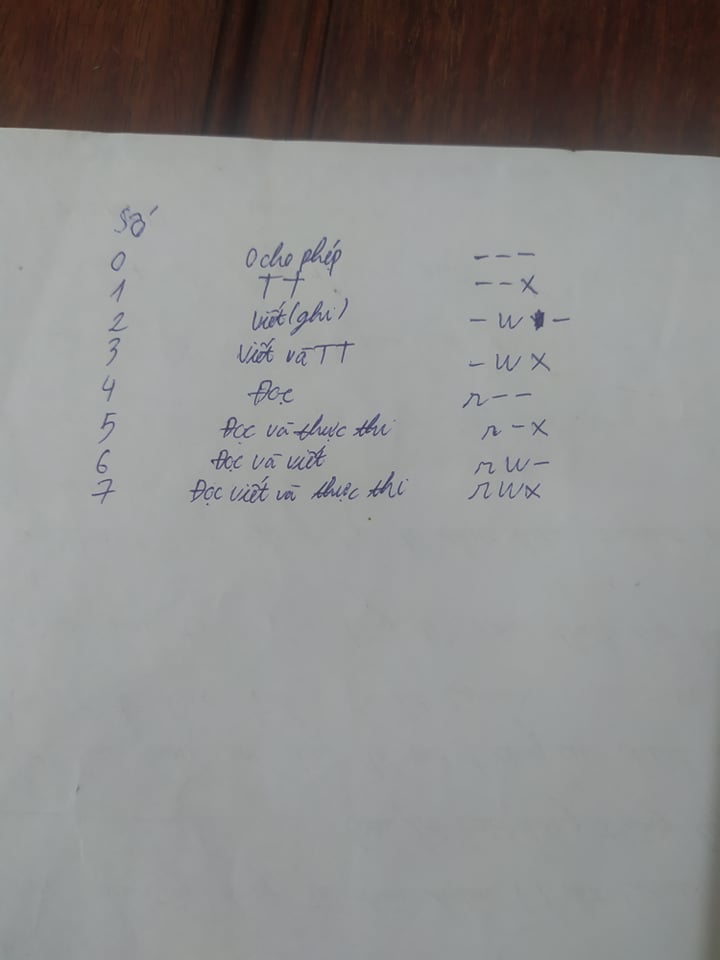 Số
0 0 cho phép ---
1 TT --x
2 Viết (ghi) -w-
3 Viết và TT -wx
4 Đọc r--
5 Đọc và thực thi r-x
6 Đọc và viết rw-
7 Đọc viết và thực thi rwx